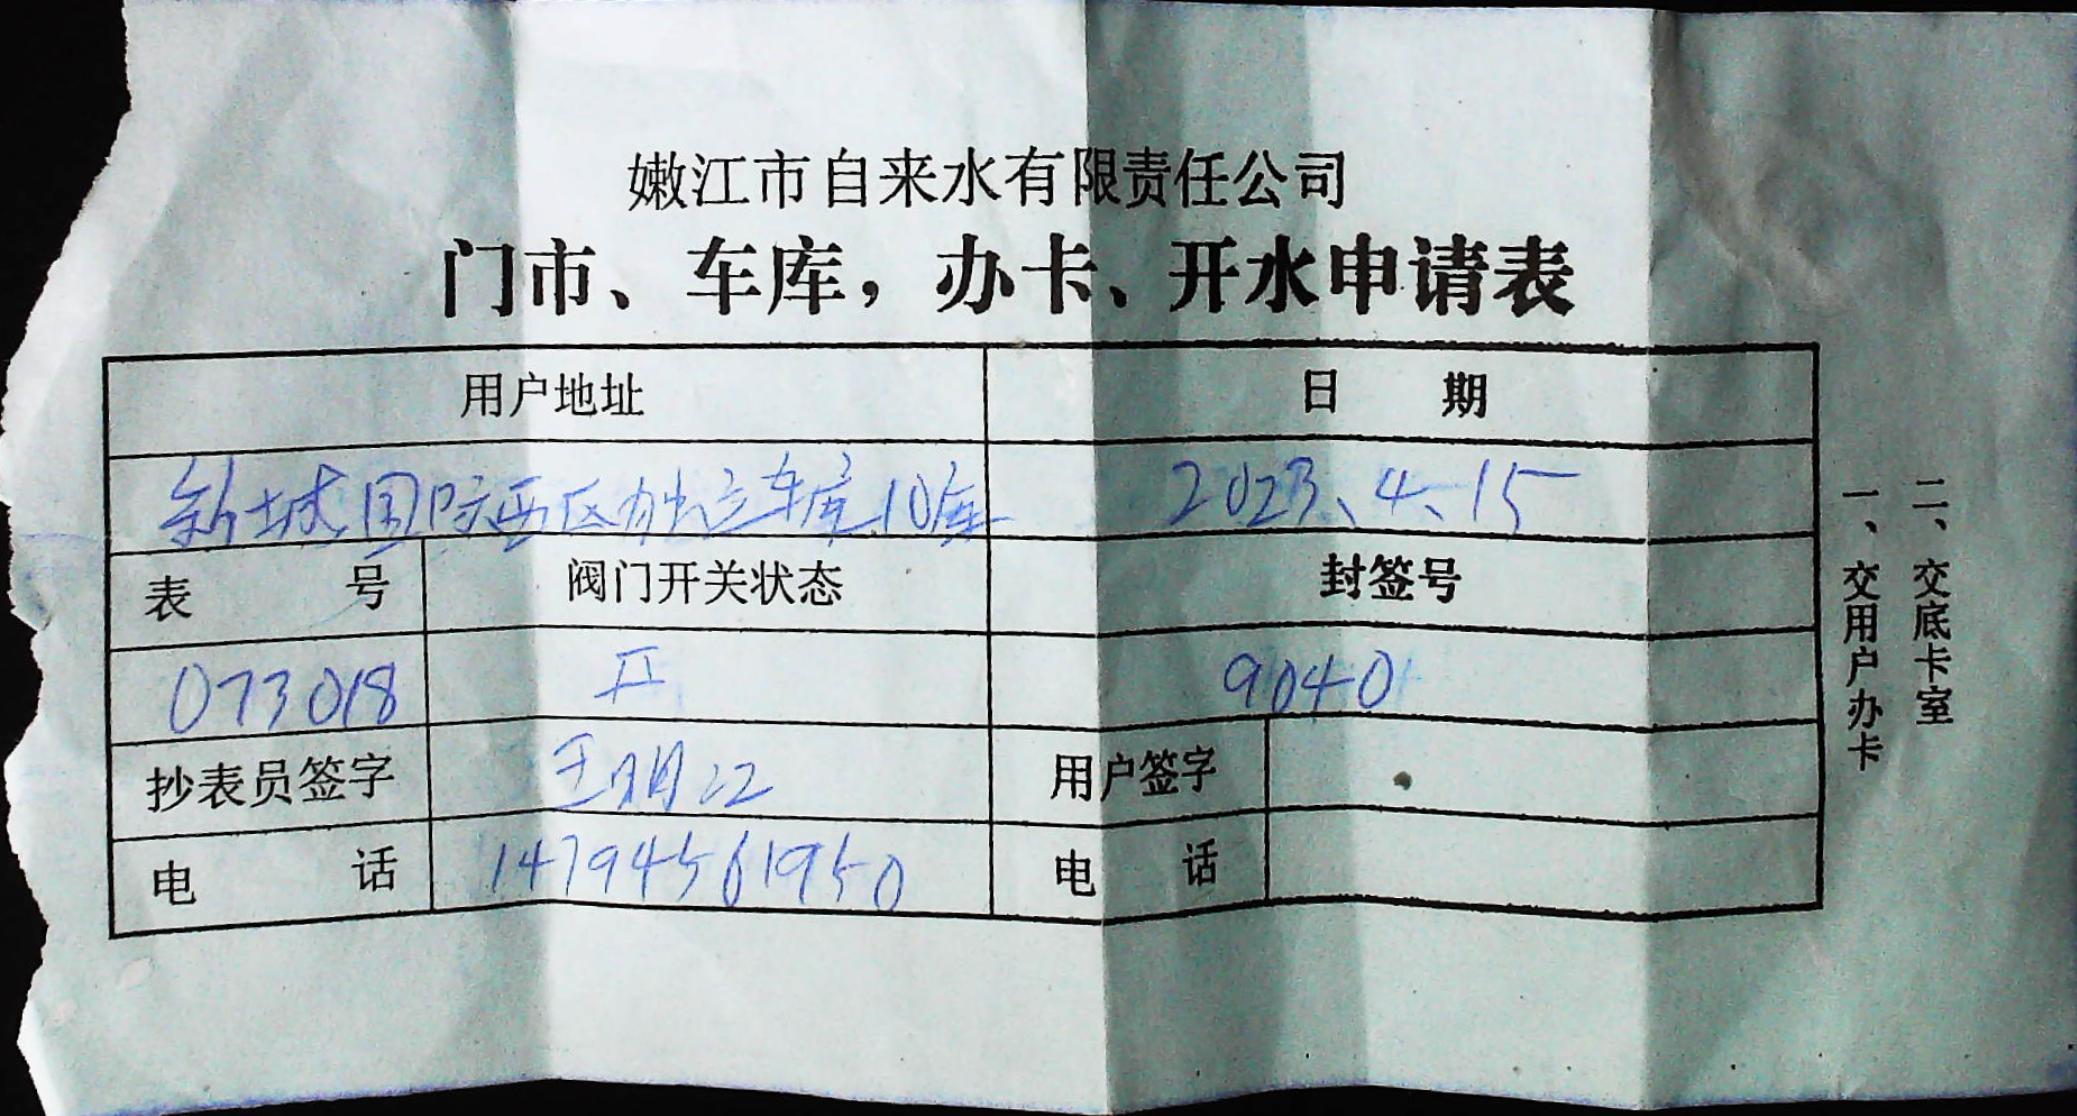 嫩江市自来水有限责任公司
门市、车库，办卡、开水申请表
用户地址 日 期
新城国际西区独立车库10库 2023、4、15
表 号 阀门开关状态 封签号
073018 开 90401
抄表员签字 王明江 用户签字
电 话 14794561950 电 话
一、交用户办卡
二、交底卡室